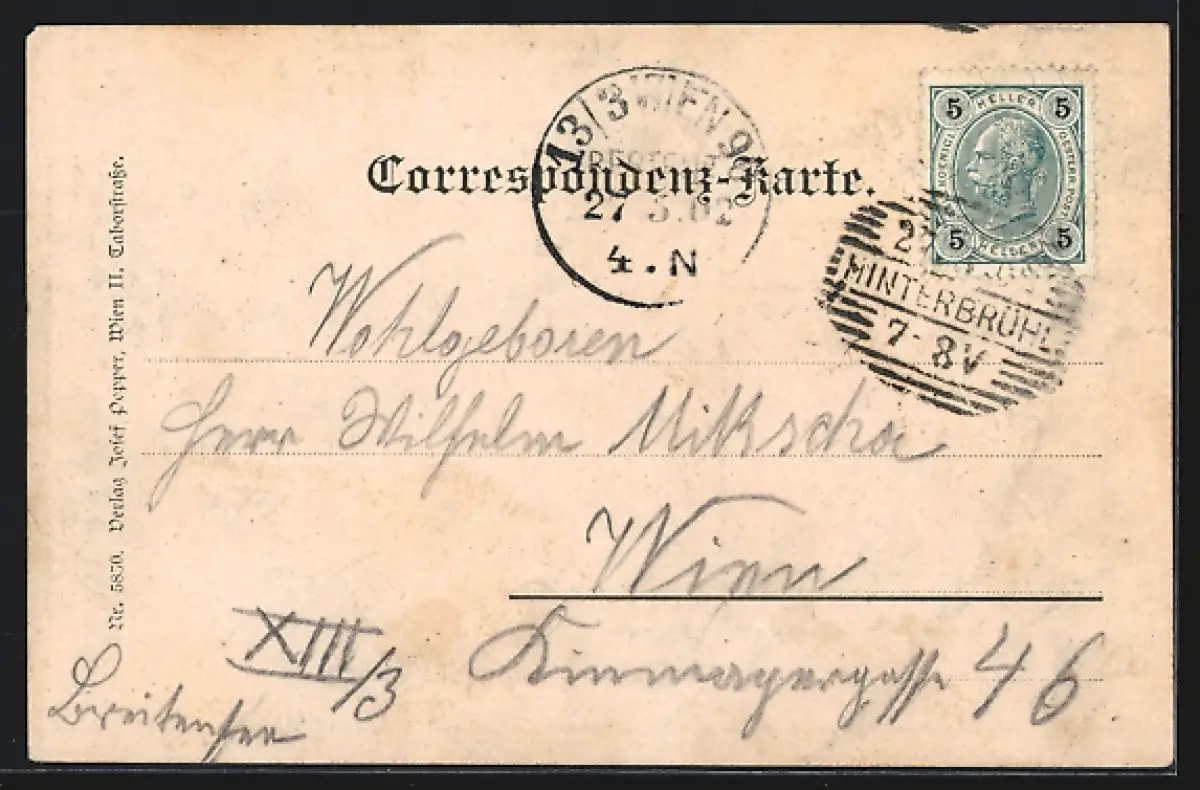 Correspondenz-Karte.
13/3 WIEN 9
27 5.02
4.N
5 HELLER 5
KOENIGL.
OESTERR.POST
5 HELLER 5
HINTERBRÜHL
7-8V
Wohlgeboren
Herr Wilhelm Mikscha
Wien
XIII/3
46
Breitensee
Nr. 5850. Verlag Josef Popper, Wien II. Taborstraße.